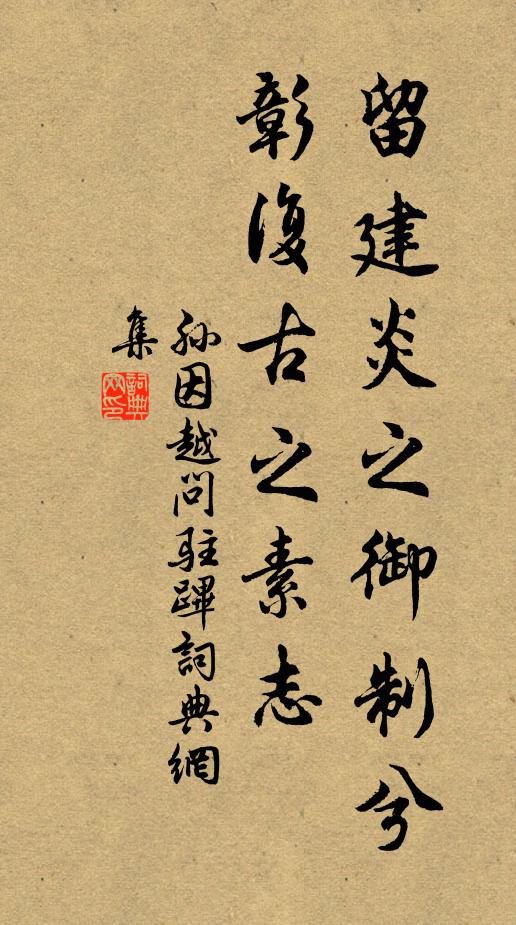 留建炎之御制兮
彰復古之素志
孫因越問駐蹕詞典網
集
詞典
网印